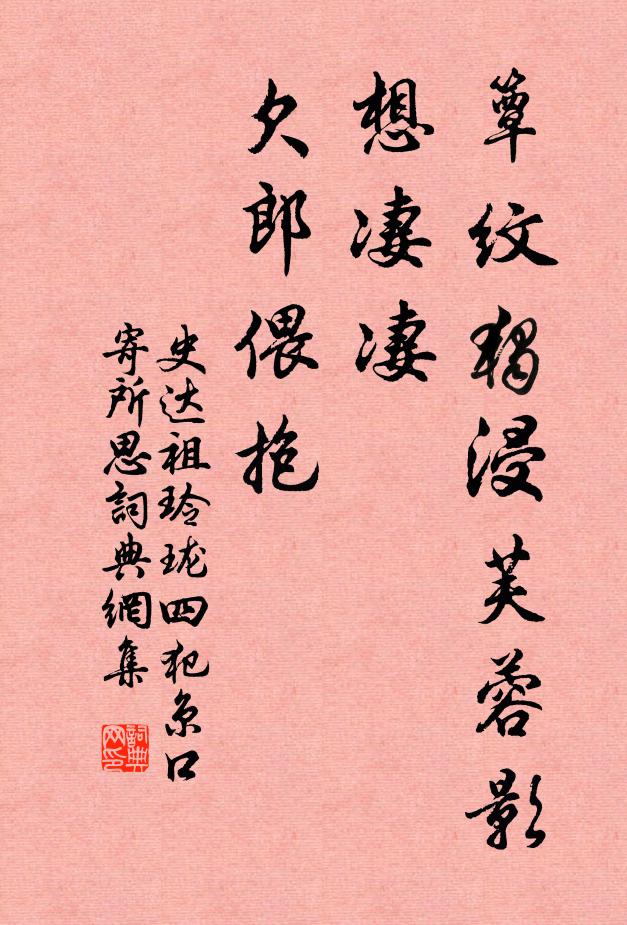 簟紋獨浸芙蓉影
想凄凄
欠郎偎抱
史达祖玲珑四犯京口
寄所思詞典網集
詞典网印